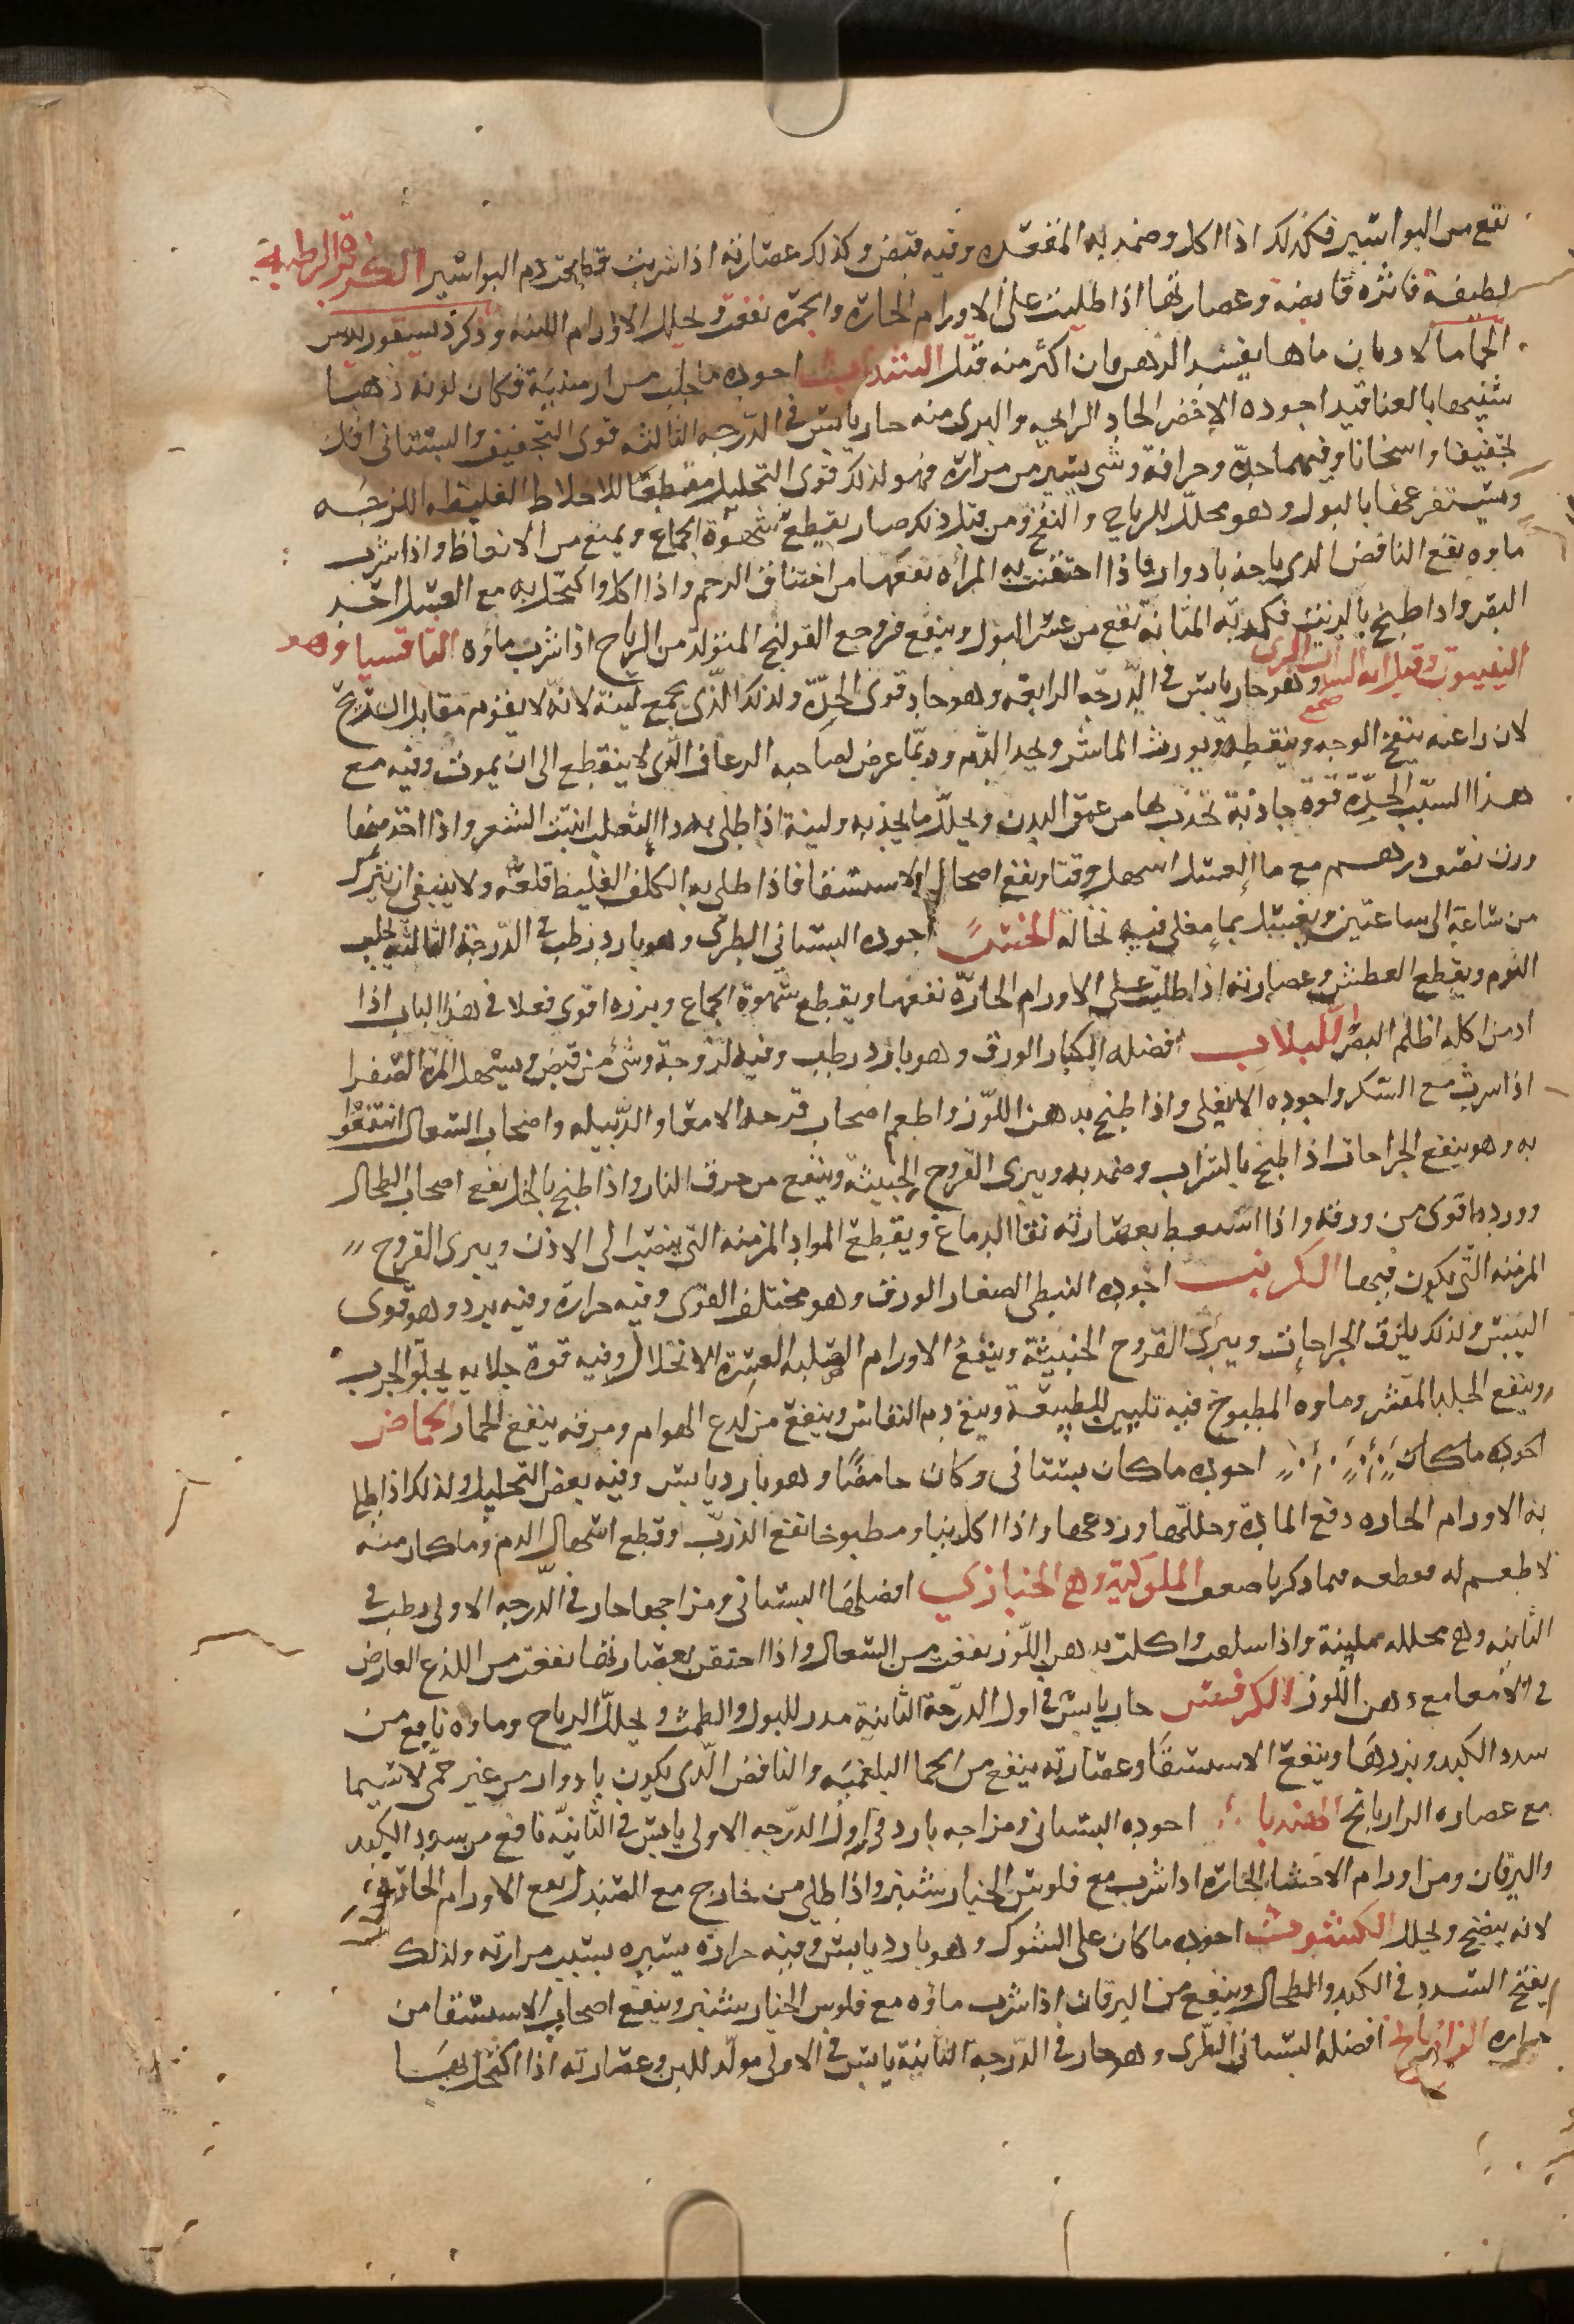 نفع من البواسير فكذلك اذا اكل وضمد به المقعده وفيه قبض وكذلك عصارته اذا شربت قطعت دم البواسير الكزبرة الرطبة
لطيفة فاتره قابضة وعصارتها اذا طليت على الاورام الحارة والحمرة نفعت وتحلل الاورام اللينه وذكر ديسقوريدس
ان الادمان ماها يفسد الذهن وان اكثر منه قتل السذاب اجوده ما جلب من ارمينية فكان لونه ذهبيا
شبيها بالعناقيد اجوده الاخضر الحاد الرايحه والبري منه حار يابس في الدرجه الثالثه قوى التجفيف والبستاني اقل
تجفيفا واسخانا وفيهما حدة وحرافة وشي يسير من مرارة فهو لذلك قوى التحليل مقطعا للاخلاط الغليظه اللزجه
ويستفرغها بالبول وهو محلل للرياح والنفخ ومن قبل ذلك صار يقطع شهوة الجماع ويمنع من الانعاظ واذا شرب
ماوه نفع النافض الذي ياخذ بادوار فاذا احتقنت به المرأه نفعها من اختناق الرحم واذا اكل واكتحل به مع العسل احد
البصر واذا طبخ بالزيت فكمد به المثانة نفع من عسر البول وينفع من وجع القولنج المتولد من الرياح اذا شرب ماؤه الثافسيا وهو
الينبوت وقيل انه السذاب البرى
صمغ
وهو حار يابس في الدرجه الرابعه وهو حاد قوى الحدة ولذلك الذى يجمع لبنه لانه لا يقوم مقابل الريح
لان راعته ينفخ الوجه وينقطه ويورث الماشرا ويحد الدم وربما عرض لصاحبه الرعاف الذى لا ينقطع الى ان يموت وفيه مع
هذا السبب الحدة قوة جاذبة تجذب لها من عمق البدن ويحلل ما يجذبه ولبنه اذا طلي به دا الثعلب انبت الشعر واذا اخذ منها
وزن نصف درهم مع ما العسل اسهل وقيا ونفع اصحاب الاستسقا فاذا طلى به الكلف الغليظ قلعه ولا ينبغى ان يترك
من ساعة الى ساعتين ويغسل بماء مغلى فيه نخاله الخس اجوده البستاني الطري وهو بارد رطب في الدرجة الثالثه يجلب
النوم ويقطع العطش وعصارته اذا طليت على الاورام الحارة نفعها ويقطع شهوة الجماع وبزره اقوى فعلا في هذا الباب اذا
ادمن اكله اظلم البصر اللبلاب افضله الكبار الورق وهو بارد رطب وفيه لزوجة وشى من قبض ويسهل المرة الصفرا
اذا شرب مع السكر واجوده الا يغلى واذا طبخ بدهن اللوز واطعم اصحاب قرحه الامعا والدبيله واصحاب السعال انتفعوا
به وهو ينفع الجراحات اذا طبخ بالشراب وضمد به ويبرى القروح الخبيثة وينفع من حرق النار واذا طبخ بالخل نفع اصحاب الطحال
وورده اقوى من ورقه واذا استعط بعصارته نقا الدماغ ويقطع المواد المزمنه التى ينصب الى الاذن ويبرى القروح
المزمنه التى يكون فيها الكرنب اجوده النبطى الصغار الورق وهو مختلف القوى وفيه حرارة وفيه برد وهو قوى
اليبس ولذلك يلزق الجراحات ويبرى القروح الخبيثة وينفع الاورام الصلبه العسرة الانحلال وفيه قوة جلايه يجلو الجرب
وينفع الجلد المتقشر وماوه المطبوخ فيه تليين للطبيعة وينفع دم النفاس وينفع من لدغ الهوام ومرقه ينفع الخمار الحماض
اجوده ماكان اجوده ماكان بستانى وكان حامضا وهو بارد يابس وفيه بعض التحليل ولذلك اذا طلي
به الاورام الحاره دفع المادة وحللها وردعها واذا اكل نيا ومطبوخا نفع الذرب وقطع اسهال الدم وما كان منه
لا طعم له فعطعه مما ذكرنا ضعيف الملوكية وهي الخبازي افضلها البستانى ومزاجها حار في الدرجه الاولى رطب في
الثانيه وهي محلله ملينة واذا سلقت واكلت بدهن اللوز نفعت من السعال واذا احتقن بعصارتها نفعت من اللذع العارض
في الامعا مع دهن اللوز الكرفس حار يابس في اول الدرجة الثانية مدر للبول والطمث ويحلل الرياح وماوه نافع من
سدد الكبد وبردها وينفع الاستسقا وعصارته ينفع من الحما البلغميه والنافض الذى يكون بادوار من غير حمى لا سيما
مع عصاره الرازيانج الهندبا اجوده البستانى ومزاجه بارد في اول الدرجه الاولى يابس في الثانية نافع من سدد الكبد
واليرقان ومن اورام الاحشا الحارة اذا شرب مع فلوس الخيارشنبر واذا طلى من خارج مع الصندل نفع الاورام الحارة
لانه ينضج ويحلل الكشوث اجوده ما كان على الشوك وهو بارد يابس وفيه حرارة يسيره بسبب مرارته ولذلك
يفتح السدد في الكبد والطحال وينفع من اليرقان اذا شرب ماؤه مع فلوس الخيار شنبر وينفع اصحاب الاستسقا من
حراره الرازيانج افضله البستانى الطرى وهو حار في الدرجة الثانية يابس في الاولى مولد للبن وعصارته اذا اكتحل بها